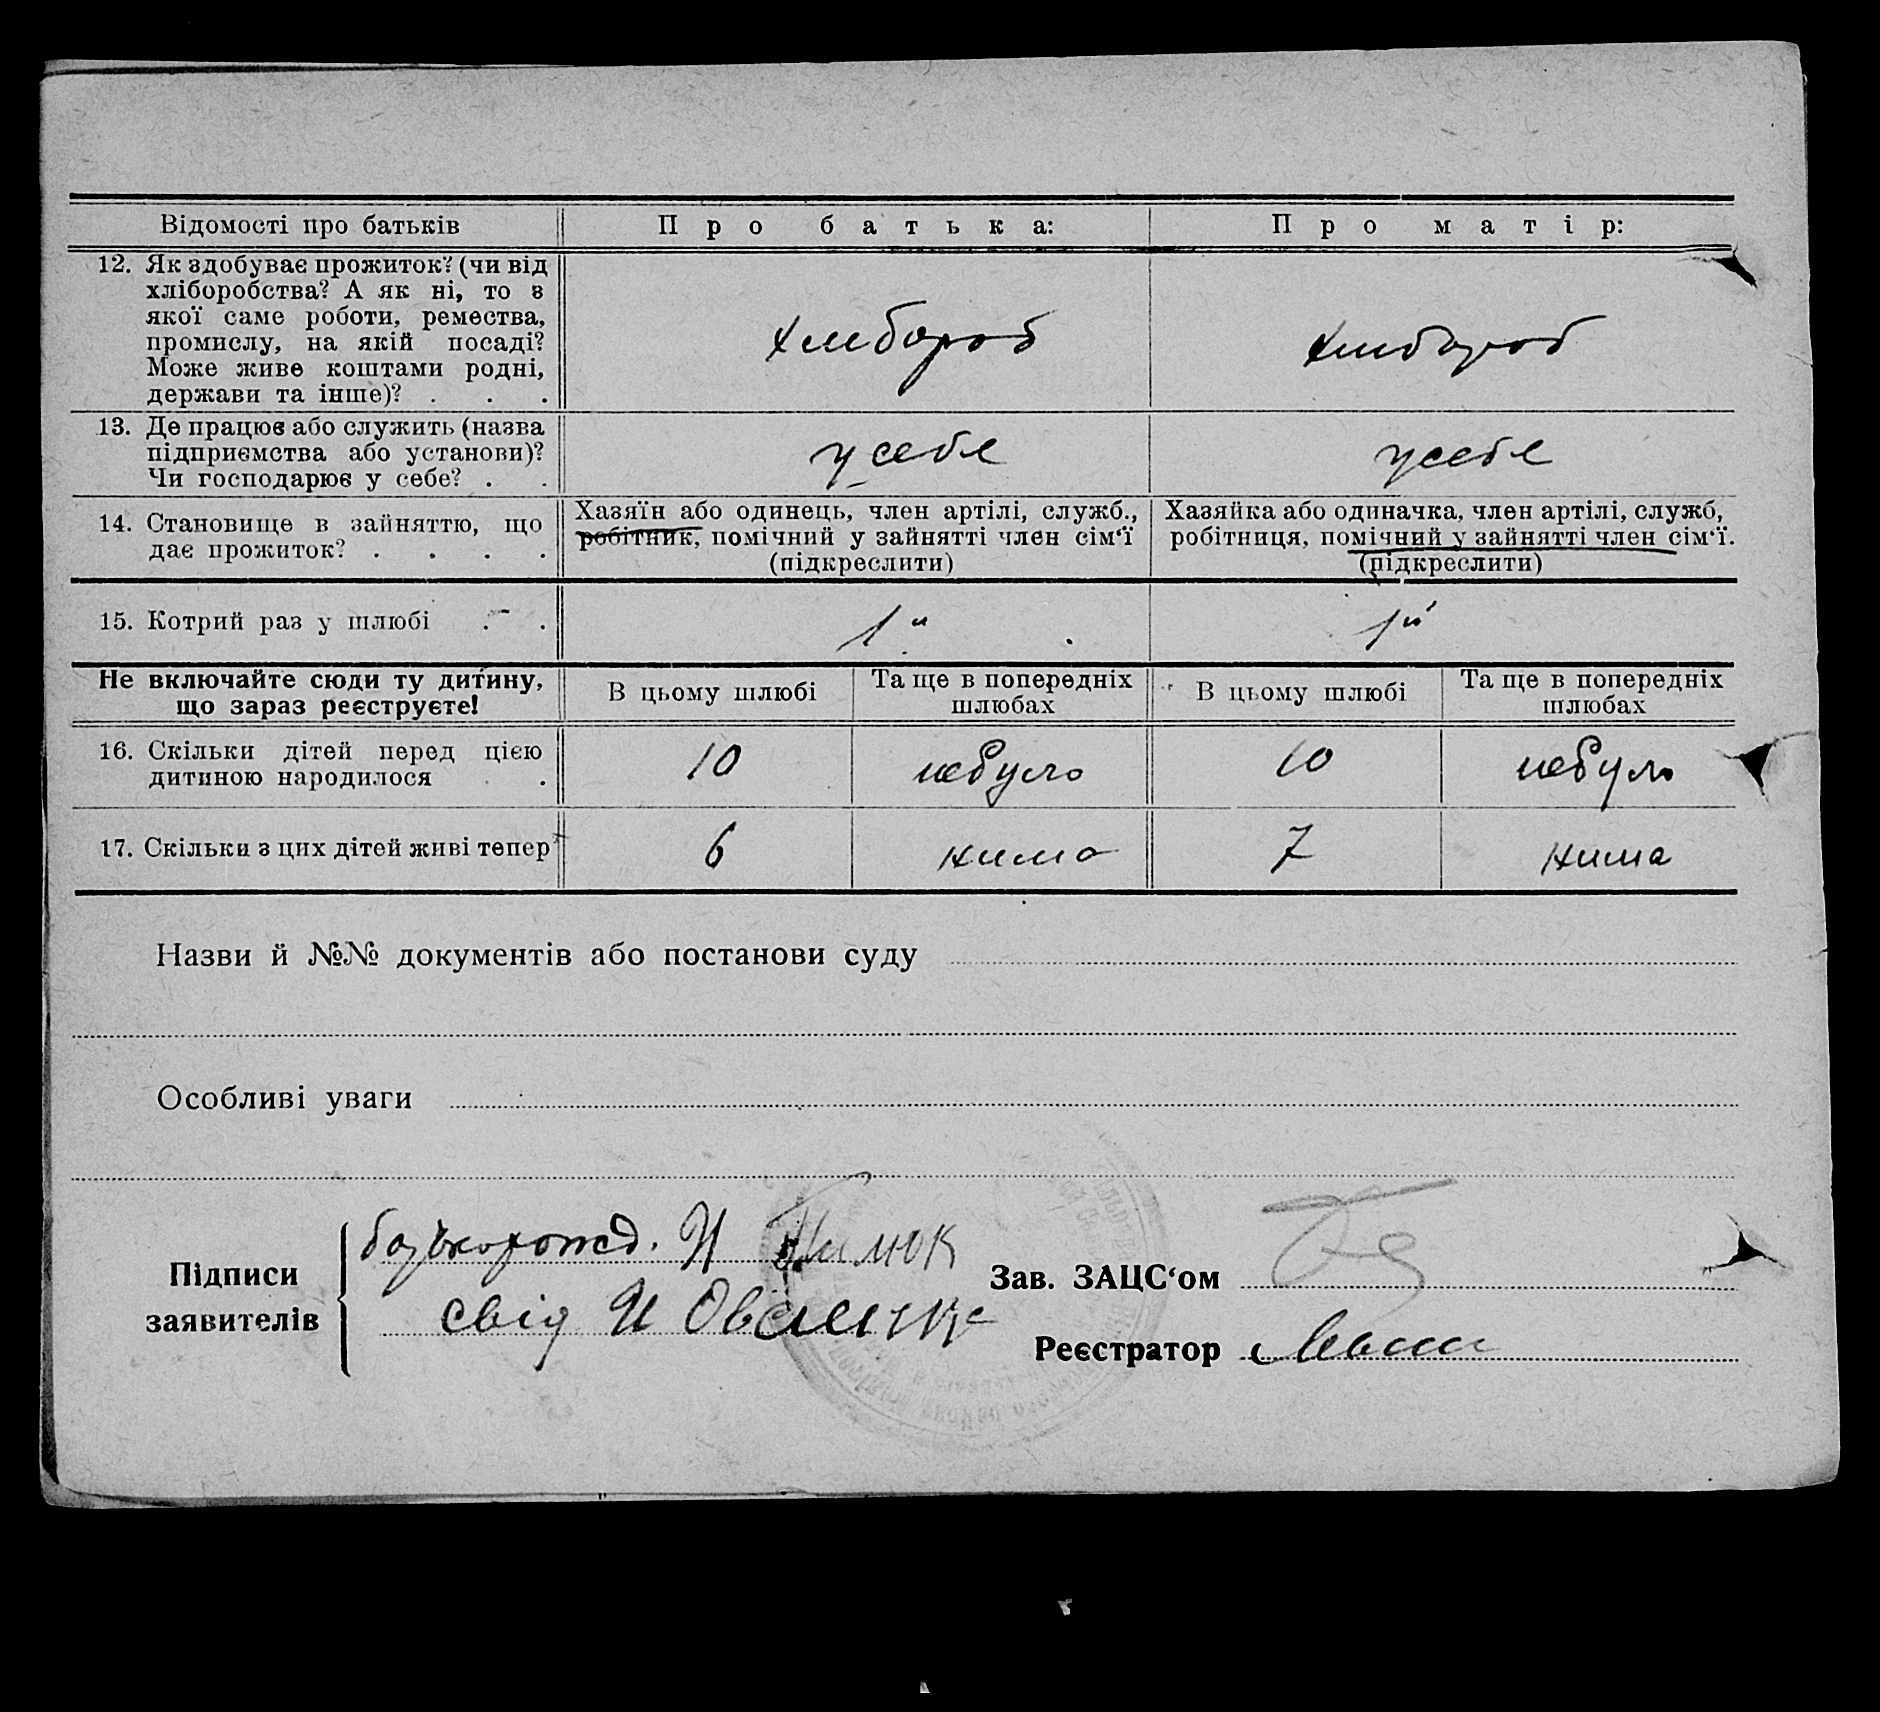 Відомості про батьків
Про батька:
Про матір:
12. Як здобуває прожиток? (чи від
хліборобства? А як ні, то з
якої саме роботи, ремества,
промислу, на якій посаді?
Може живе коштами родні,
держави та інше)? . . .
хлибороб
хлибороб
13. Де працює або служить (назва
підприємства або установи)?
Чи господарює у себе? . .
у себе
у себе
14. Становище в зайняттю, що
дає прожиток? . . . .
Хазяїн або одинець, член артілі, служб.,
робітник, помічний у зайнятті член сім‘ї
(підкреслити)
Хазяйка або одиначка, член артілі, служб,
робітниця, помічний у зайнятті член сім‘ї.
(підкреслити)
15. Котрий раз у шлюбі . .
1й
1й
Не включайте сюди ту дитину,
що зараз реєструєте!
В цьому шлюбі
Та ще в попередніх
шлюбах
В цьому шлюбі
Та ще в попередніх
шлюбах
16. Скільки дітей перед цією
дитиною народилося .
10
небуло
10
небуло
17. Скільки з цих дітей живі тепер
6
нима
7
нима
Назви й №№ документів або постанови суду
Особливі уваги
Підписи
заявителів
И
свід И
Зав. ЗАЦС‘ом
Реєстратор